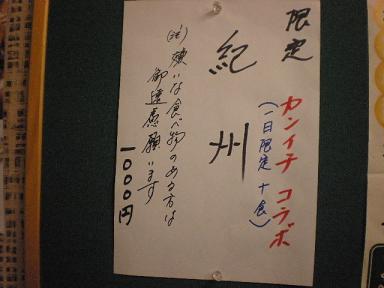 限定
カンイチ コラボ
(一日限定 十食)
紀州
(注) 嫌いな食べ物のある方は
御遠慮願います
一〇〇〇円